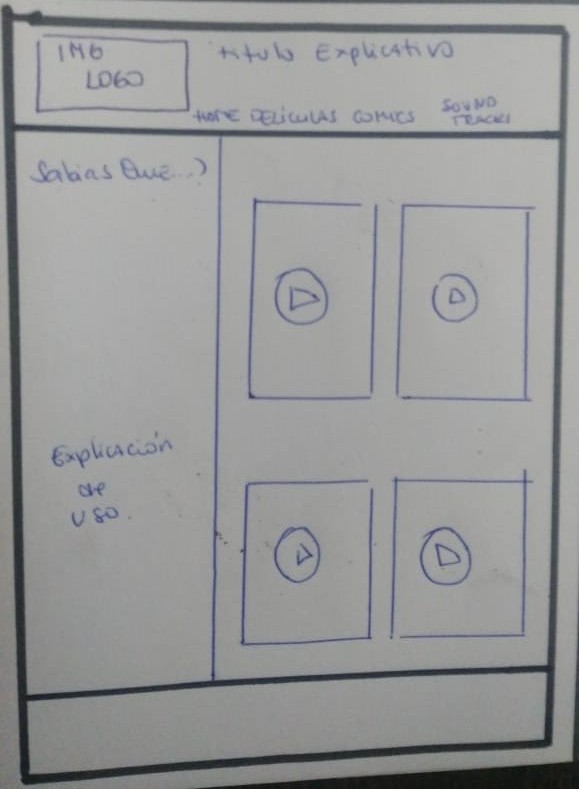 IMG
LOGO
titulo Explicativo
HOME PELÍCULAS COMICS SOUND
TRACKS
Sabias Que...?
Explicación
de
uso.